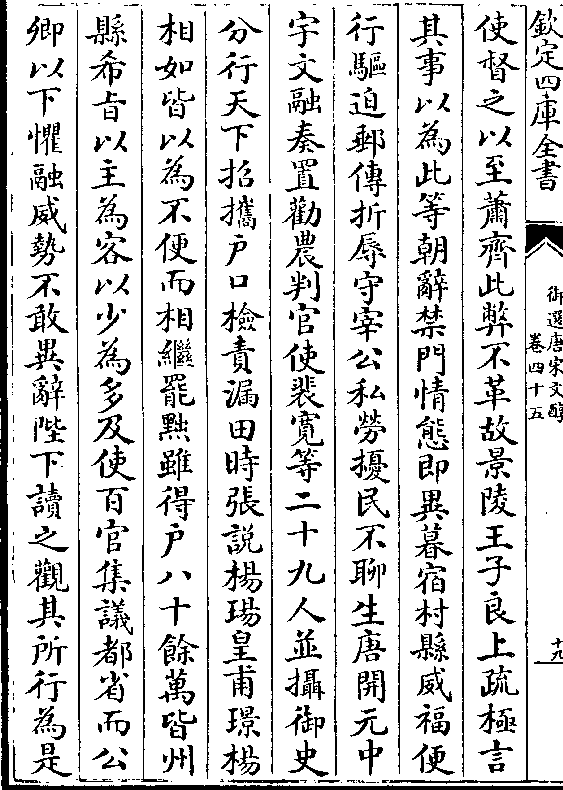 欽定四庫全書
御選唐宋文醇
卷四十五
十九
使督之以至蕭齊此弊不革故景陵王子良上疏極言
其事以為此等朝辭禁門情態即異暮宿村縣威福便
行驅迫郵傳折辱守宰公私勞擾民不聊生唐開元中
宇文融奏置勸農判官使裴寛等二十九人並攝御史
分行天下招攜户口檢責漏田時張説楊瑒皇甫璟楊
相如皆以為不便而相繼罷黜雖得户八十餘萬皆州
縣希㫖以主為客以少為多及使百官集議都省而公
卿以下懼融威勢不敢異辭陛下讀之觀其所行為是